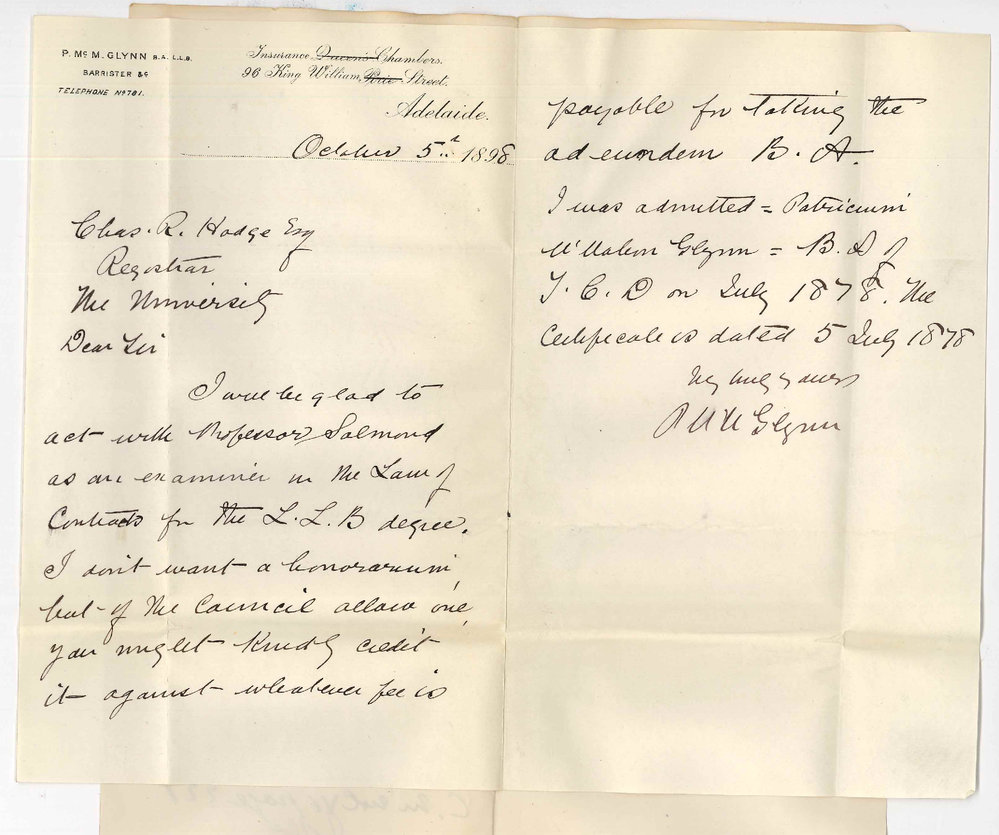 P. Mc M. GLYNN B.A. L.L.B.
BARRISTER &c
TELEPHONE No 701.
Insurance Queen's Chambers.
96 King William, Pirie Street.
Adelaide.
October 5th 1898
Chas. R. Hodge Esq
Registrar
The University
Dear Sir
I will be glad to
act with Professor Salmond
as an examiner in the Law of
Contracts for the L.L.B degree.
I don't want a honorarium,
but if the Council allow one,
you might kindly credit
it against whatever fee is
payable for taking the
ad eundem B. A.
I was admitted = Patricium
M'Mahon Glynn = B. A of
T. C. D on July 1878. The
Certificate is dated 5 July 1878
Very truly yours
P M M Glynn